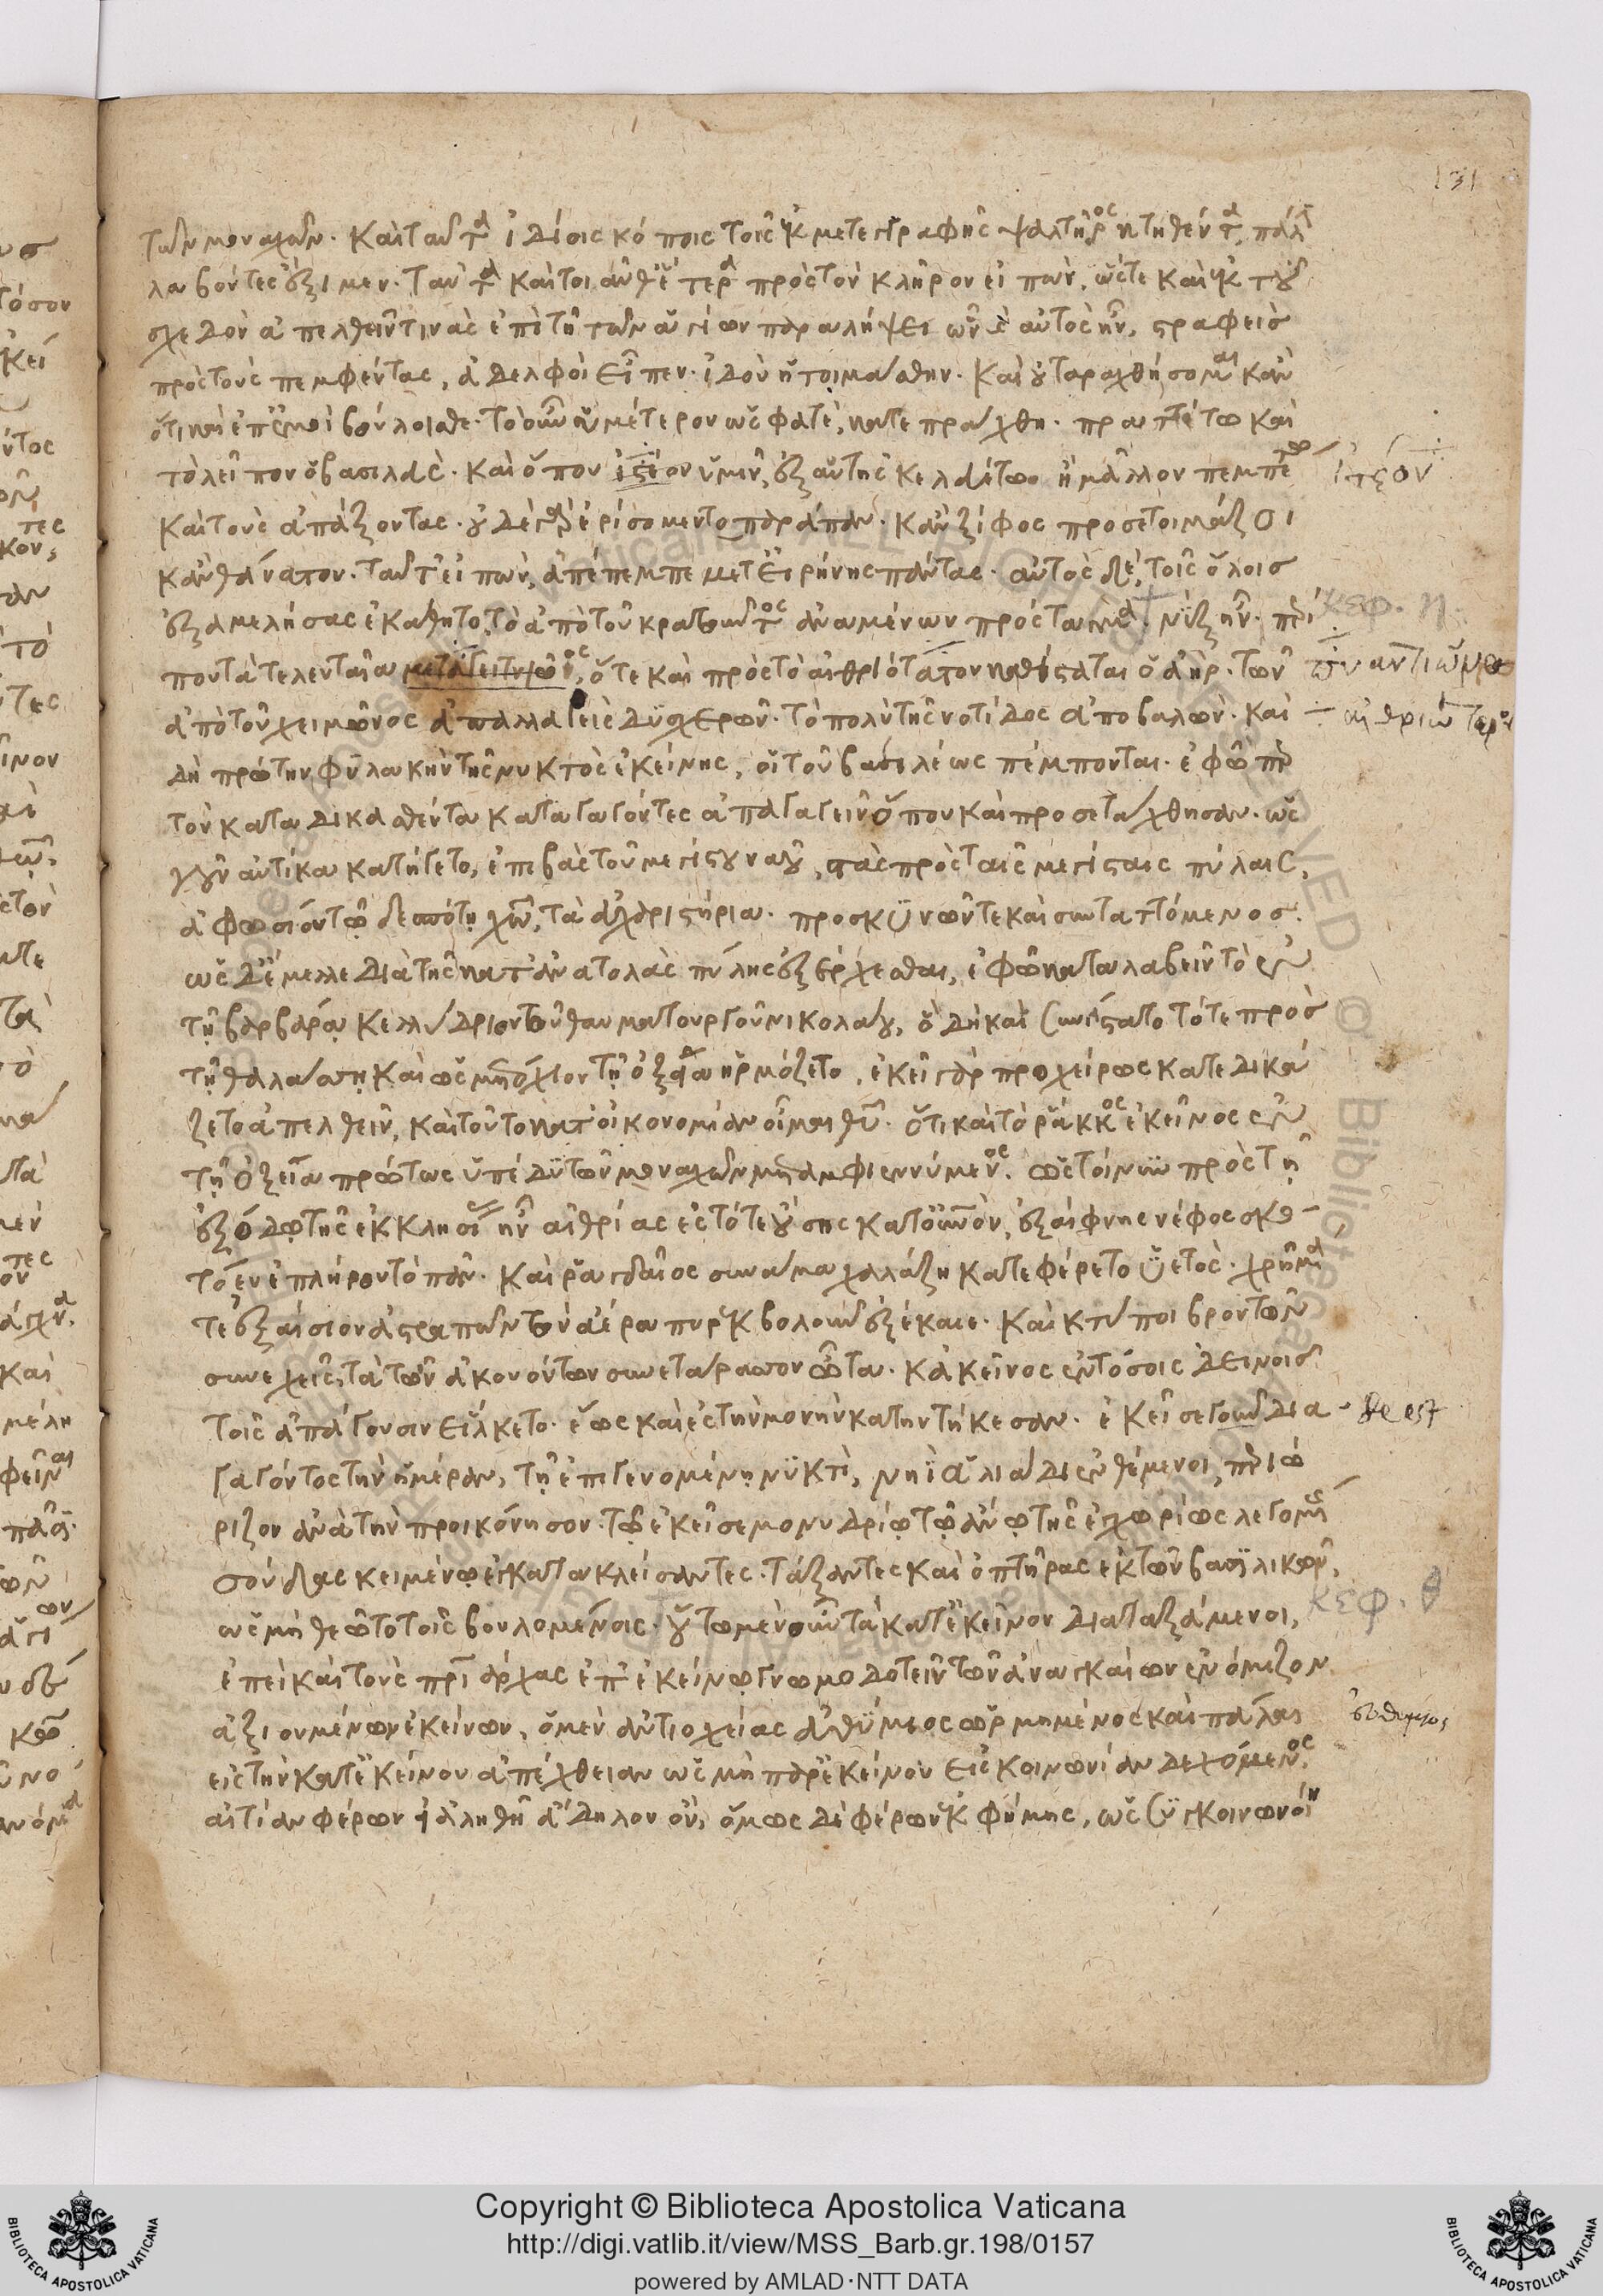 131
τῶν μοναχῶν. Καὶ ταῦτα ἰδίοις κόποις τοῖς ἐκ μετεγγραφῆς ψαλτῆρος κτηθέντα, πάλιν
λαβόντες ἔξιμεν. Ταῦτα καὶ τοιαῦθ' ἕτερα πρὸς τὸν κλῆρον εἰπών, ὥστε καὶ ἐκ τοῦ
σχεδὸν ἀπελθεῖν τινὰς ἐπὶ τῇ τῶν ἁγίων παραλήψει ὧν αὐτὸς ἦν, στραφεὶς
πρὸς τοὺς πεμφθέντας, ἀδελφοὶ εἶπεν. ἰδοὺ ἡτοιμάσθην. Καὶ οὐ ταραχθήσομαι κἂν
ὅτι καὶ ἐπ' ἐμοὶ βούλοισθε. τὸ οὖν ἡμέτερον ὡς φατὲ, κατεπράχθη. πραττέτω καὶ
τὸ λεῖπον ὁ βασιλεὺς. Καὶ ὅπου ἰτέον ἡμῖν, ἐξαυτῆς κελευέτω ἢ μᾶλλον πεμπέτω
Καὶ τοὺς ἀπάξοντας. οὐδὲ γὰρ ἐρίσομεν τοπαράπαν. Κἂν ξίφος προσετοιμάζοι
κἂν θάνατον. ταῦτ' εἰπών, ἀπέπεμπε μετ' εἰρήνης πάντας. αὐτὸς δὲ, τοῖς ὅλοις
ἐξαμελήσας ἐκάθητο, τὸ ἀπὸ τοῦ κρατοῦντος ἀναμένων πρόσταγμα. Νὺξ ἦν. περί
που τὰ τελευταῖα μεταγειτνιῶνος, ὅτε καὶ πρὸς τὸ αἰθριότατον καθίσταται ὁ ἀὴρ. τῶν
ἀπὸ τοῦ χειμῶνος ἀπαλλαγεὶς δυσχερῶν. τὸ πολὺ τῆς νοτίδος ἀποβαλών. Καὶ
δὴ πρώτην φυλακὴν τῆς νυκτὸς ἐκείνης, οἱ τοῦ βασιλέως πέμπονται. ἐφ' ᾧπερ
τὸν καταδικασθέντα καταγαγόντες ἀπαγαγεῖν ὅπου καὶ προσετάχθησαν. ὡς
γοῦν αὐτίκα κατήγετο, ἐπιβὰς τοῦ μεγίστου ναοῦ, στὰς πρὸς ταῖς μεγίσταις πύλαις,
ἀφωσιοῦν τῷ δεσπότῃ χριστῷ, τὰ εὐχαριστήρια. προσκυνῶν τε καὶ συνταττόμενος.
ὡς δ' ἔμελλε διὰ τῆς κατ' ἀνατολὰς πύλης ἐξέρχεσθαι, ἐφ' ᾧ καταλαβεῖν τὸ ἐν
τῇ βαρβάρᾳ κελλύδριον τοῦ θαυματουργοῦ νικολάου, ὃ δὴ καὶ συνίστατο τότε πρὸς
τῇ θαλάσσῃ καὶ ὡς μετόχιον τῇ ὀξείᾳ ἡρμόζετο, ἐκεῖ γὰρ προχείρως κατεδικά
ζετο ἀπελθεῖν, καὶ τοῦτο κατ' οἰκονομίαν οἶμαι θεοῦ. ὅτι καὶ τὸ ῥάκκος ἐκεῖνος ἐν
τῇ ὀξείᾳ πρώτως ὑπέδυ τῶν μοναχῶν μεταμφιεννύμενος. ὡς τοίνυν πρὸς τῇ
ἐξόδῳ τῆς ἐκκλησίας ἦν αἰθρίας ἐς τότε οὔσης κατ' οὐρανόν, ἐξαίφνης νέφος σκό-
τους ἐνεπλήρου τὸ πᾶν. Καὶ ῥαγδαῖος συνάμα χαλάζῃ κατεφέρετο ὑετὸς. χρῆμά
τε ἐξαίσιον ἀστραπῶν τὸν ἀέρα πυρεκβολοῦν ἐξέκαιε. Καὶ κτύποι βροντῶν
συνεχεῖς, τὰ τῶν ἀκουόντων συνετάρασσον ὦτα. Κἀκεῖνος ἐν τόσοις δεινοῖς
τοῖς ἀπάγουσιν εἵλκετο. ἕως καὶ ἐς τὴν μονὴν κατηντήκεσαν. ἐκεῖσε γοῦν δια-
γαγόντος τὴν ἡμέραν, τῇ ἐπιγενομένῃ νυκτὶ, νηῒ ἁλιάδι ἐνθέμενοι, περιώ
ριζον ἀνὰ τὴν προικόνησον. τῷ ἐκεῖσε μονυδρίῳ τῷ ἄνω τῆς ἐγχωρίως λεγομένης
σούδας κειμένῳ ἐγκατακλείσαντες. τάξαντες καὶ ὀπτῆρας ἐκ τῶν βασιλικῶν,
ὡς μὴ θεῷτο τοῖς βουλομένοις. οὕτω μὲν οὖν τὰ κατ' ἐκεῖνον διαταξάμενοι,
ἐπεὶ καὶ τοὺς πατριάρχας ἐπ' ἐκείνῳ γνωμοδοτεῖν τῶν ἀναγκαίων ἐνόμιζον
ἀξιουμένων ἐκείνων, ὁ μὲν ἀντιοχείας εὐθύμιος ὡρμημένος καὶ πάλαι
εἰς τὴν κατ' ἐκείνου ἀπέχθειαν ὡς μὴ παρ' ἐκείνου εἰς κοινωνίαν δεχόμενος.
αἰτίαν φέρων εἰ ἀληθῆ ἄδηλον ὄν, ὅμως δὲ φέρων ἐκ φήμης, ὡς συγκοινωνοίη
ἰτέον
κεφ. η.
αἰθριώτερον
deest
κεφ. θ
εὐθύμιος
Copyright © Biblioteca Apostolica Vaticana
http://digi.vatlib.it/view/MSS_Barb.gr.198/0157
powered by AMLAD·NTT DATA
BIBLIOTECA APOSTOLICA VATICANA
BIBLIOTECA APOSTOLICA VATICANA